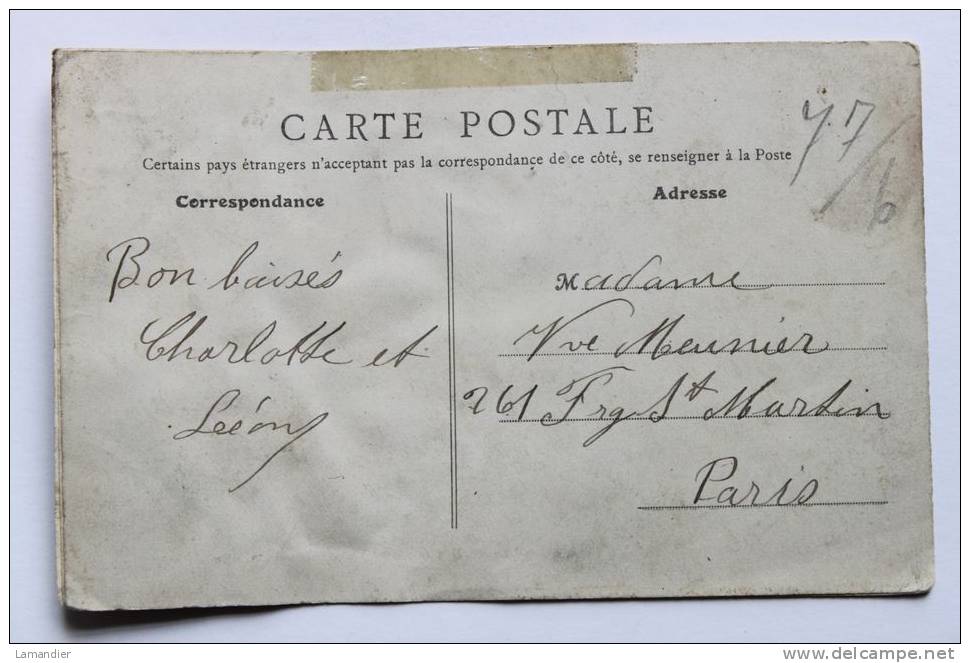 CARTE POSTALE
Certains pays étrangers n'acceptant pas la correspondance de ce côté, se renseigner à la Poste
Correspondance
Bon baisés
Charlotte et
Léon
Adresse
Madame
Vve Meunier
261 Frg St Martin
Paris
Lamandier
www.delcampe.net